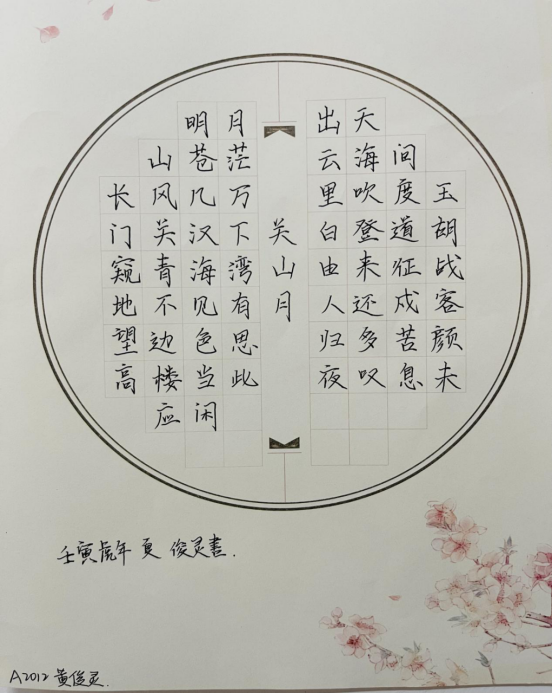 关山月
明月出天
山苍茫云海间
长风几万里吹度玉
门关汉下白登道胡
窥青海湾由来征战
地不见有人还戍客
望边色思归多苦颜
高楼当此夜叹息未
应闲
壬寅虎年 夏 俊灵書.
A2012 黄俊灵.